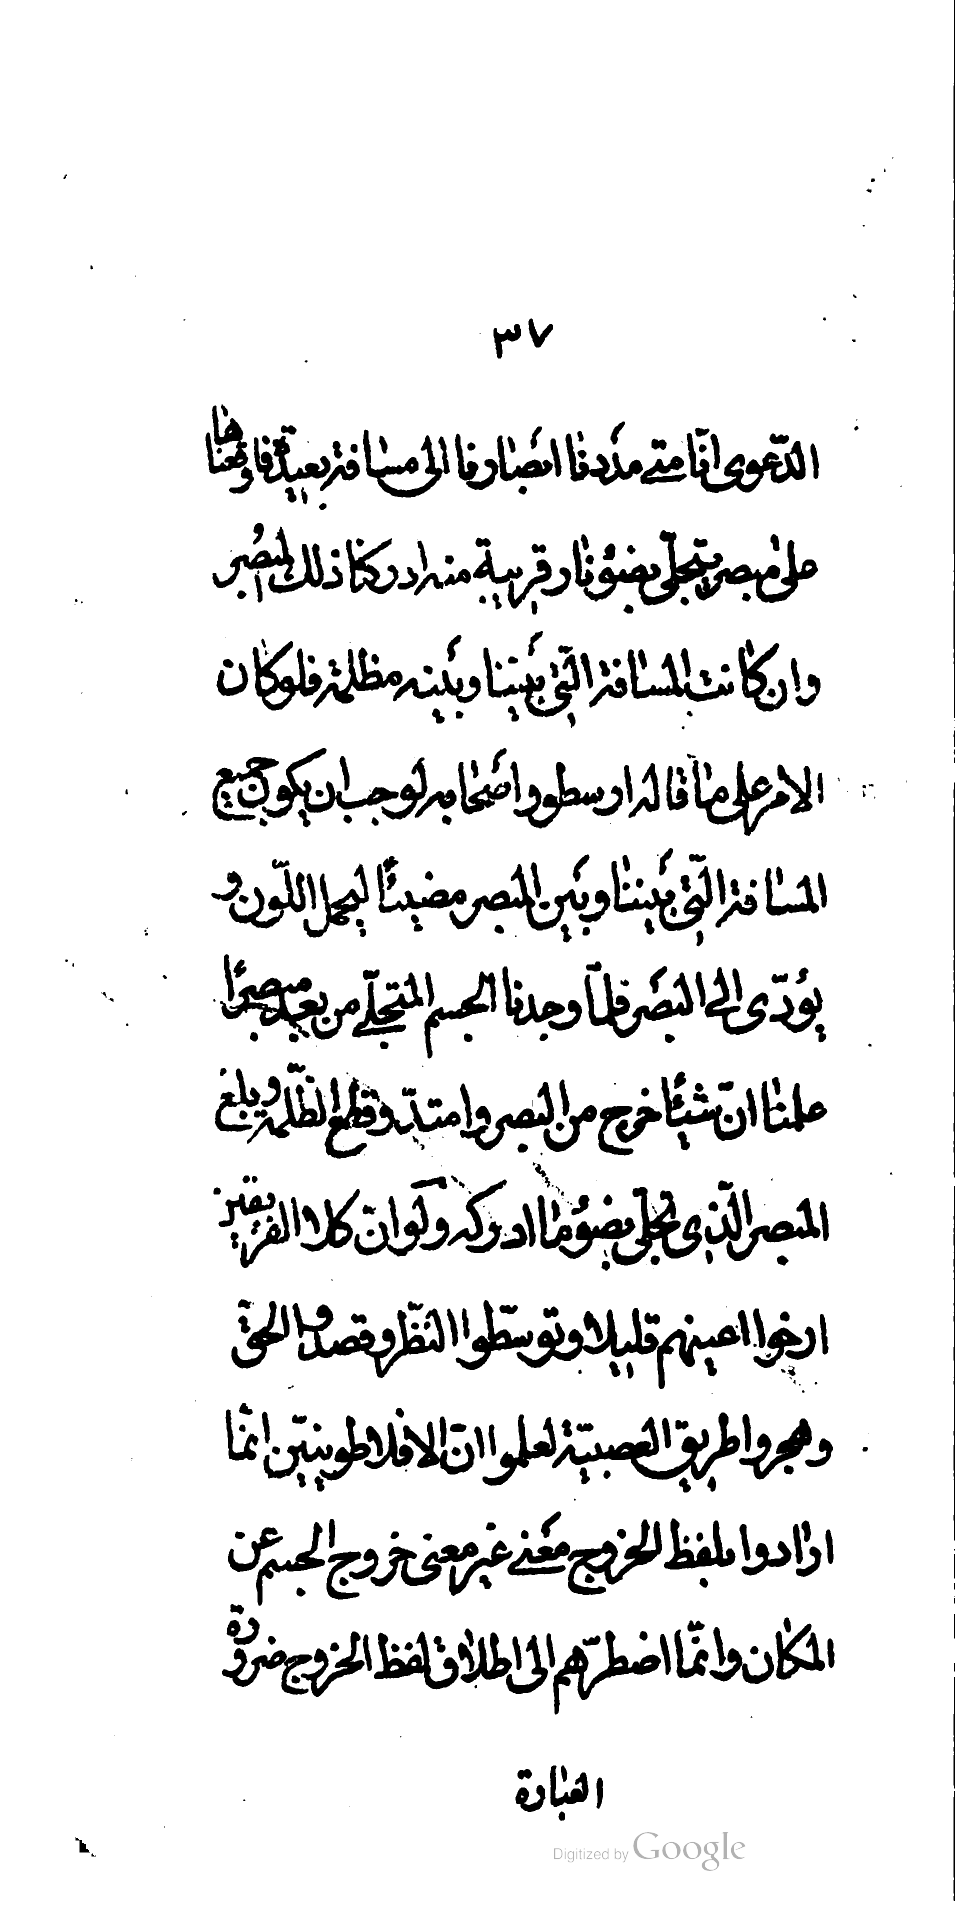 ٣٧
الدّعوى انّا متى مدّدنا ابصارنا الى مسافة بعيدة فاوقعناها
على مبصر يتجلّى بضوء نار قريبة منه ادركنا ذلك المبصر
وان كانت المسافة الّتى بيننا وبينه مظلمة فلو كان
الامر على ما قاله ارسطو واصحابه لوجب ان يكون جميع
المسافة الّتى بيننا وبين المبصر مضيئًا ليحمل اللّون و
يؤدّى الى البصر فلمّا وجدنا الجسم المتجلّى من بعيد مبصرًا
علمنا انّ شيئًا خرج من البصر وامتدّ وقطع الظّلمة وبلغ
المبصر الّذى تجلّى بضوء ما ادركه ولو انّ كلا الفريقين
ارخوا اعينهم قليلا وتوسّطوا النّظر وقصدوا الحقّ
وهجروا طريق العصبيّة لعلموا انّ الافلاطونيّين انّما
ارادوا بلفظ الخروج معنى غير معنى خروج الجسم عن
المكان وانّما اضطرّهم الى اطلاق لفظ الخروج ضرورة
العبارة
Digitized by Google